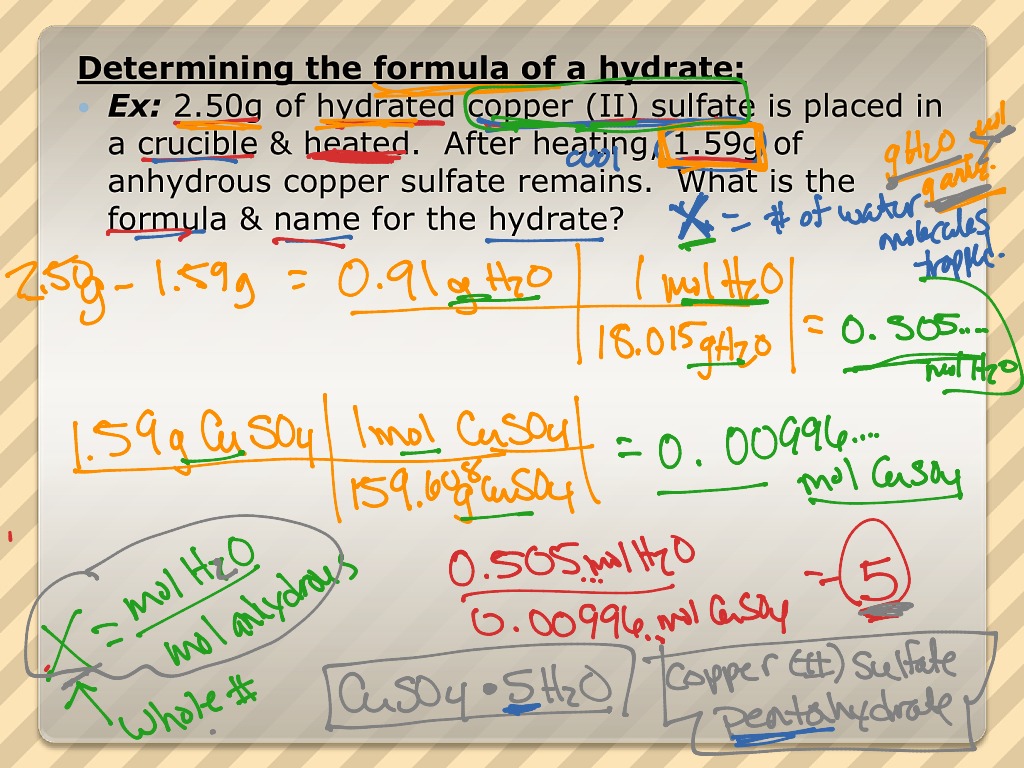 Determining the formula of a hydrate:
Ex: 2.50g of hydrated copper (II) sulfate is placed in
a crucible & heated. After heating, 1.59g of
cool
anhydrous copper sulfate remains. What is the
formula & name for the hydrate?
gH2O
X = # of water
molecules
trapped.
2.50g - 1.59g = 0.91 g H2O | 1 mol H2O
18.015 g H2O = 0.505....
mol H2O
1.59 g CuSO4 | 1 mol CuSO4 = 0.00996....
159.608 g CuSO4 mol CuSO4
X = mol H2O
mol anhydrous
whole #
0.505...mol H2O = 5
0.00996...mol CuSO4
CuSO4 • 5H2O
Copper (II) Sulfate
pentahydrate